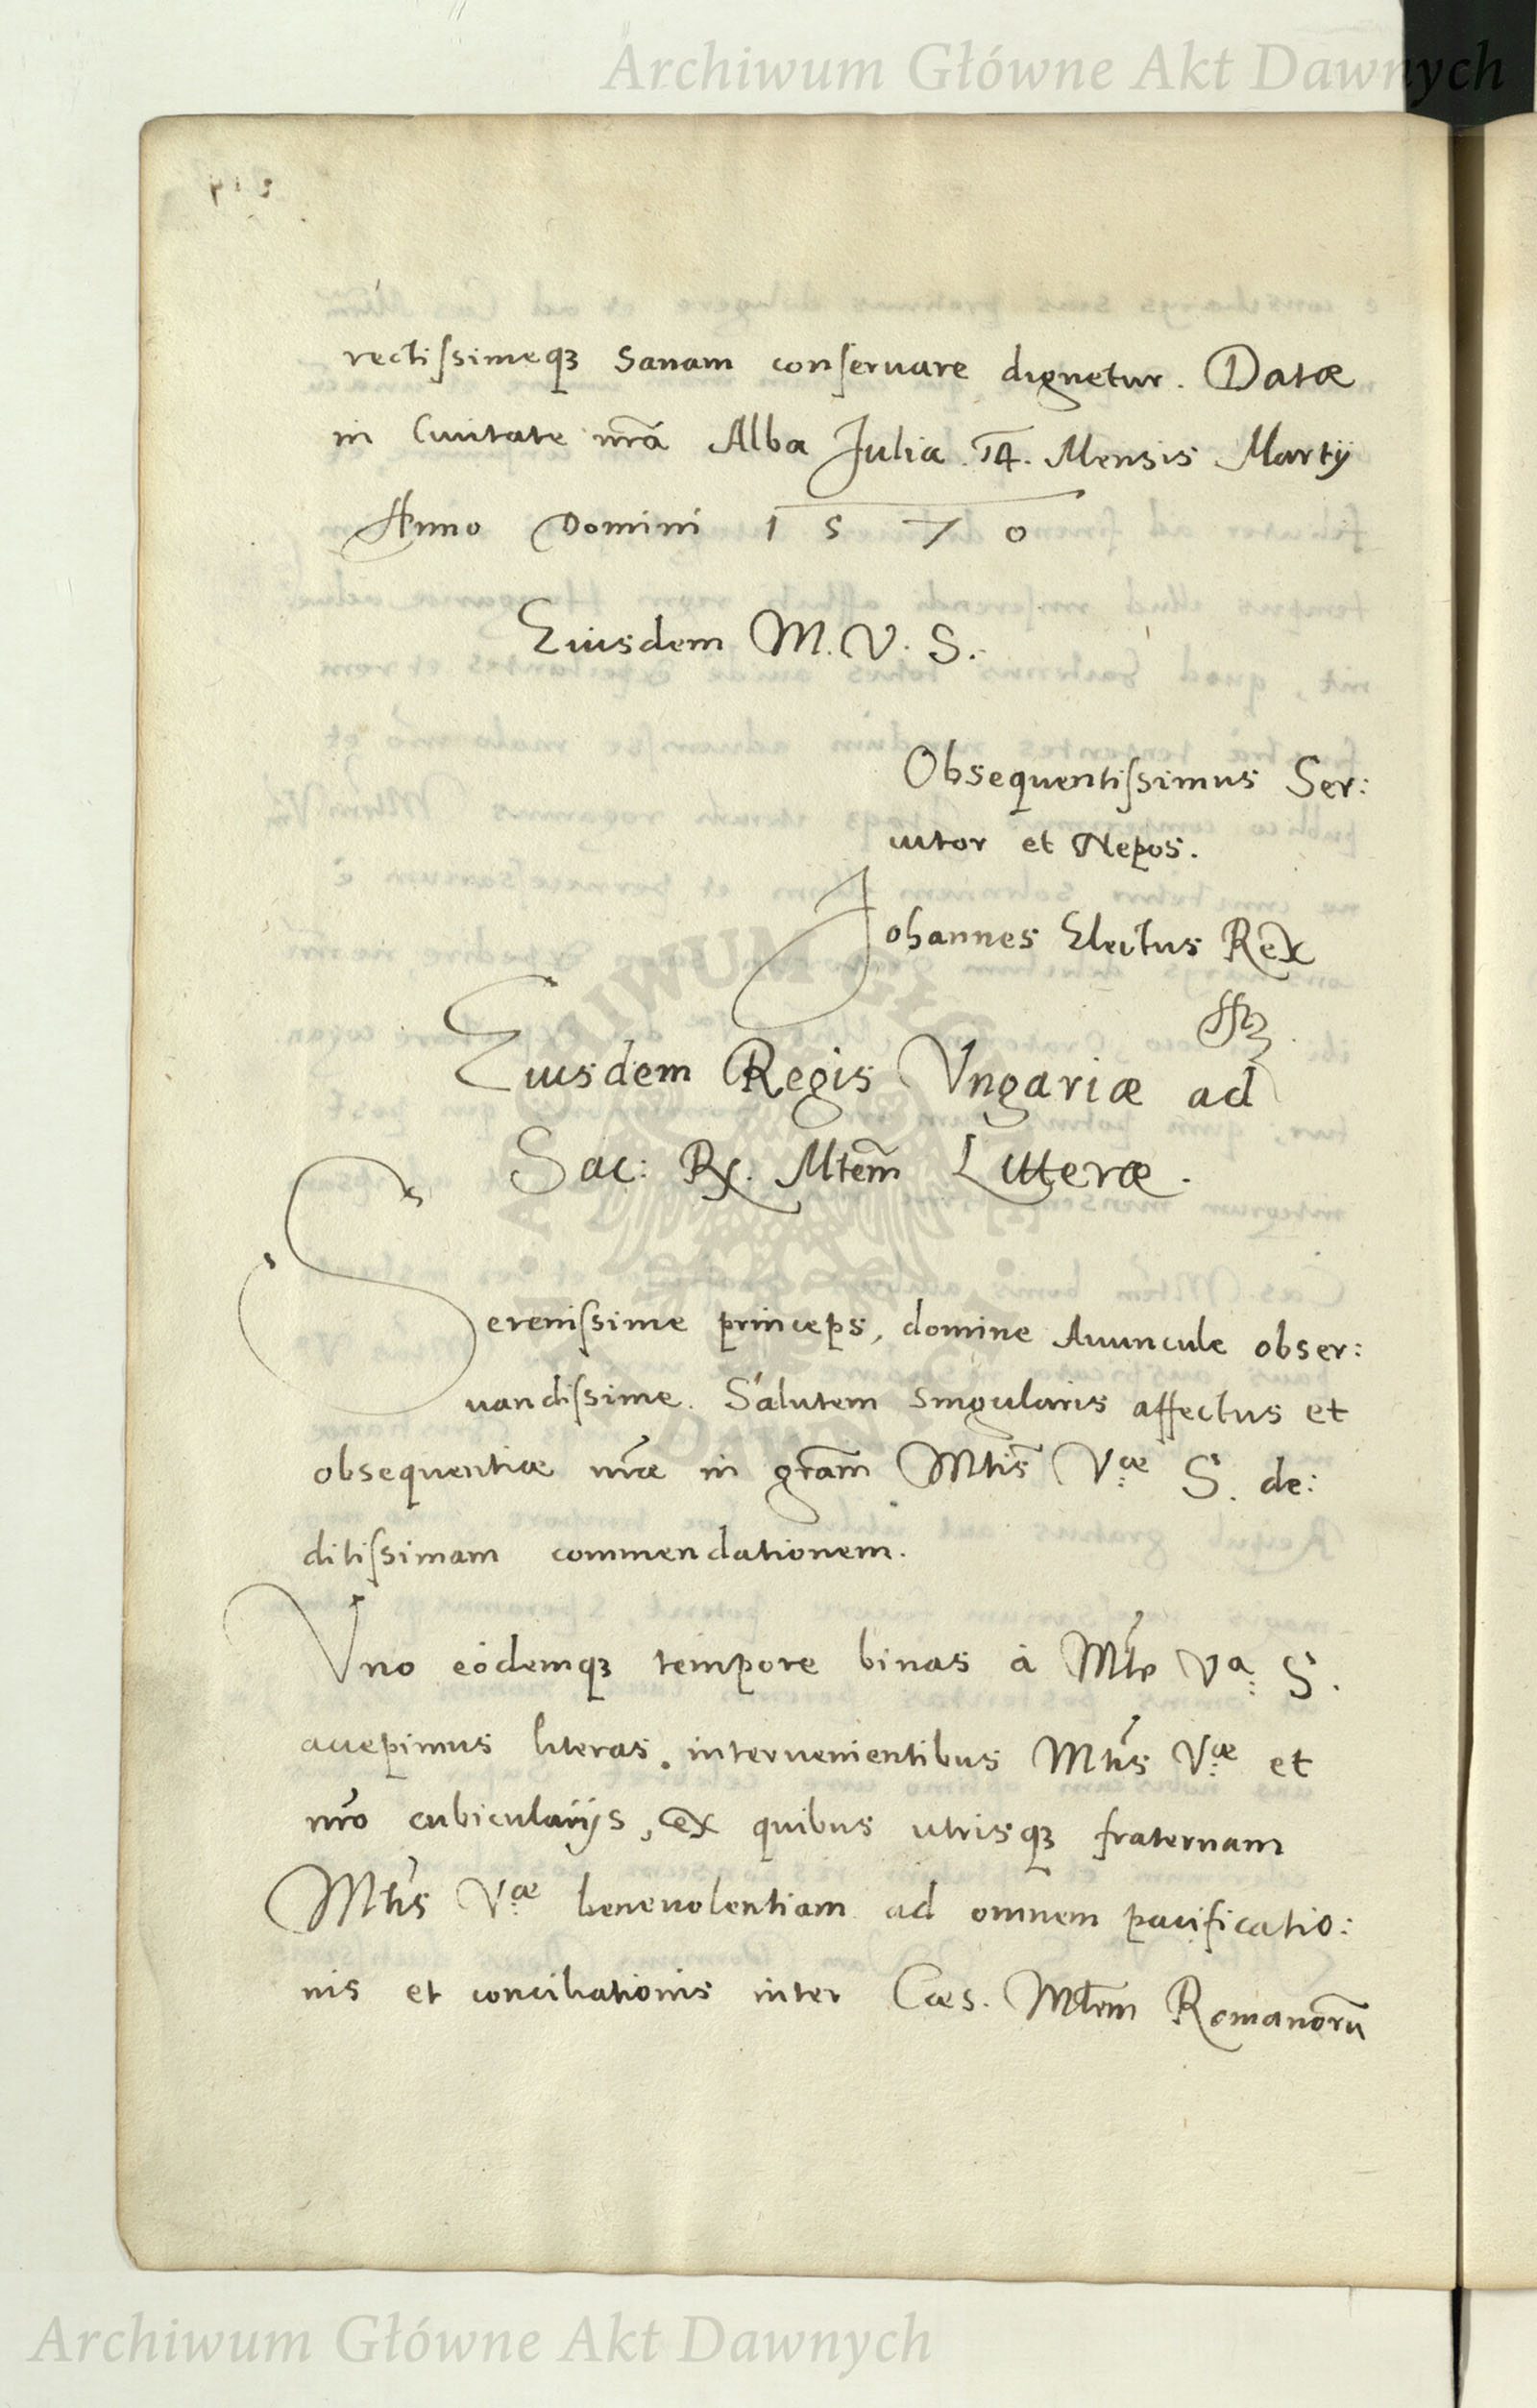 Archiwum Główne Akt Dawnych
rectißimeqꝫ sanam conseruare dignetur. Datæ
in Ciuitate nr̃a Alba Julia 14. Mensis Martij
Anno Domini 1570
Eiusdem M. V. S.
Obsequentißimus Ser:
uitor et Nepos.
Johannes Electus Rex
Eiusdem Regis Vngariæ ad
Sac: Rx. Mtem̃ Litteræ.
Serenißime princeps, domine Auuncule obser:
uandißime. Salutem singularis affectus et
obsequentiæ nr̃æ in gr̃am Mtis̃ Væ S. de:
ditißimam commendationem.
Vno eòdemqꝫ tempore binas à Mte Va S.
accepimus literas. interuenientibus Mtis Væ et
nr̃o cubicularijs, ex quibus utrisqꝫ fraternam
Mtis Væ beneuolentiam ad omnem pacificatio:
nis et conciliationis inter Cæs. Mtem Romanorũ
ARCHIWUM GŁÓWNE
AKT DAWNYCH
Archiwum Główne Akt Dawnych